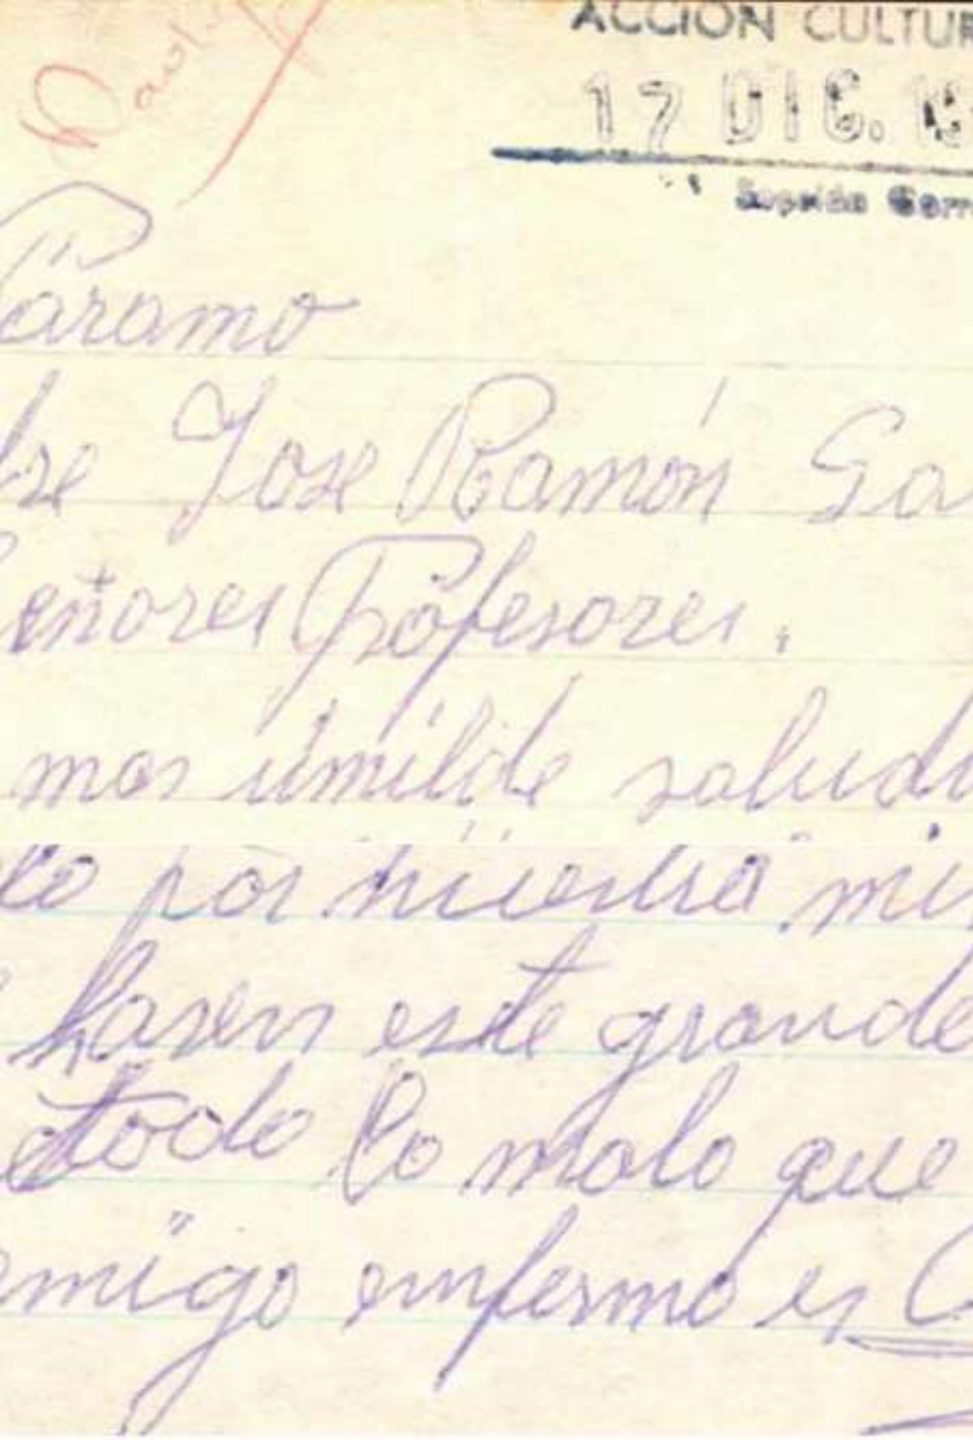 ACCION CULTUR
17 DIC. 19
Sección Corre
Páramo
dre Jose Ramón Ga
eñores Profesores.
mas úmilde saludo
to por nuestra mi
hasen este grande
metodo lo malo que
emigo emfermo es